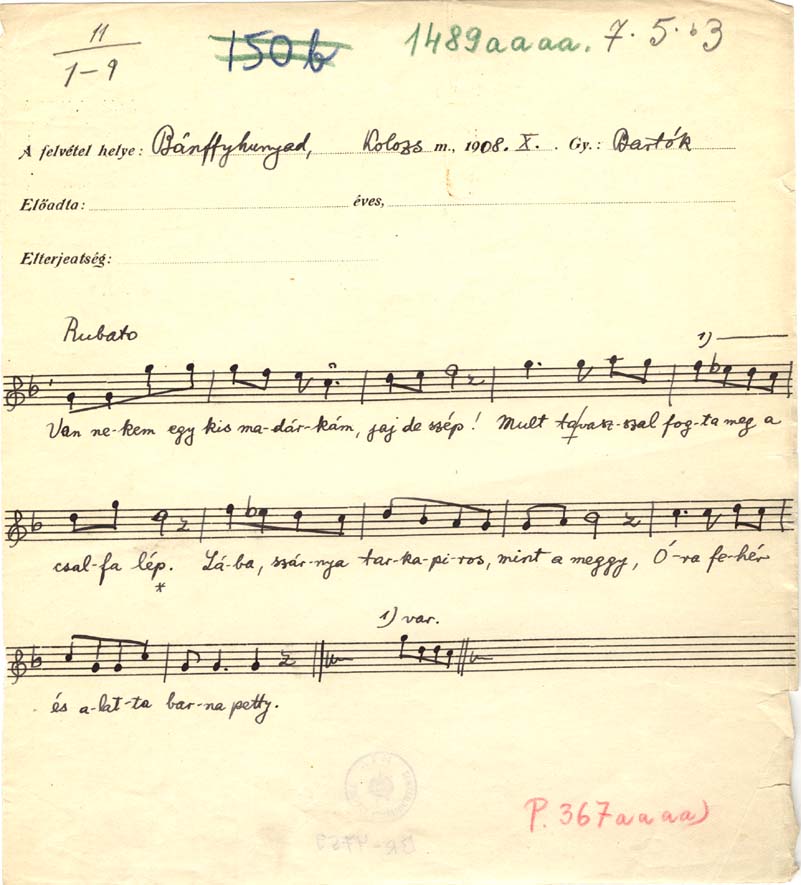 11 150b 1489aaaa. 7. 5. b3
1-9
A felvétel helye: Bánffyhunyad, Kolozs m., 1908. X. Gy.: Bartók
Előadta: éves,
Elterjeatség:
Rubato 1)
Van ne-kem egy kis ma-dár-kám, jaj de szép! Mult tavasz-szal fog-ta meg a
csal-fa lép. Lá-ba, szár-nya tar-ka-pi-ros, mint a meggy, Ó-ra fe-hér
*
1) var.
és a-lat-ta bar-na petty.
P. 367aaaa)